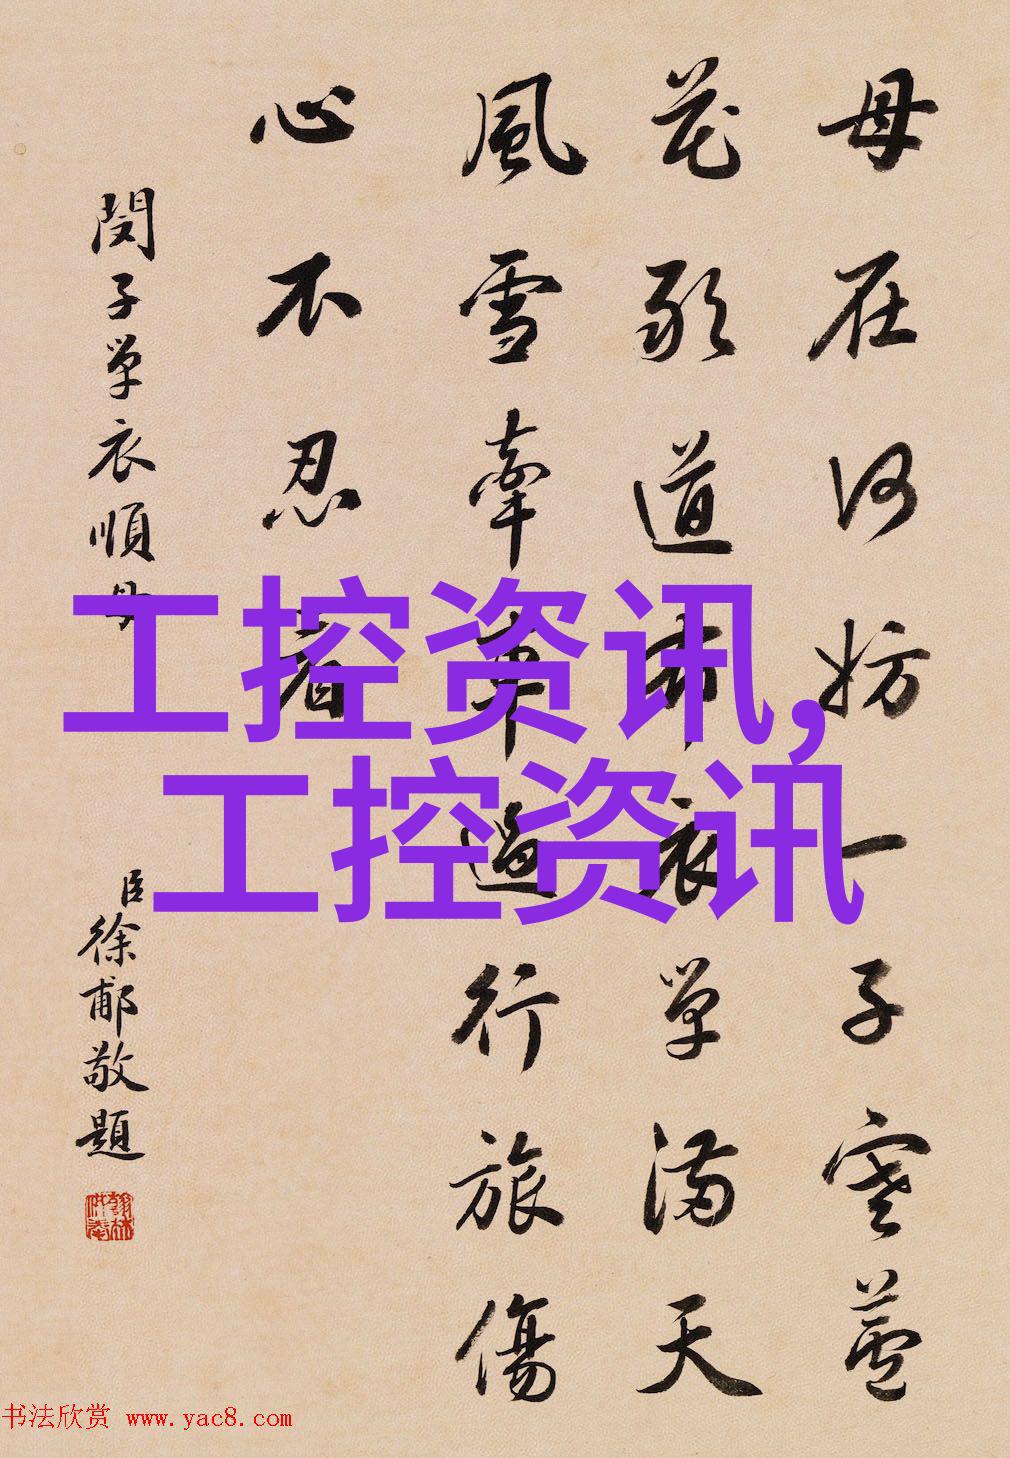 母在何妨一子寒蘆
花道衣單滿天
風雪牽車過行旅傷
心不忍看
閔子單衣順母
臣徐郙敬題
工控资讯,
工控资讯
书法欣赏 www.yac8.com